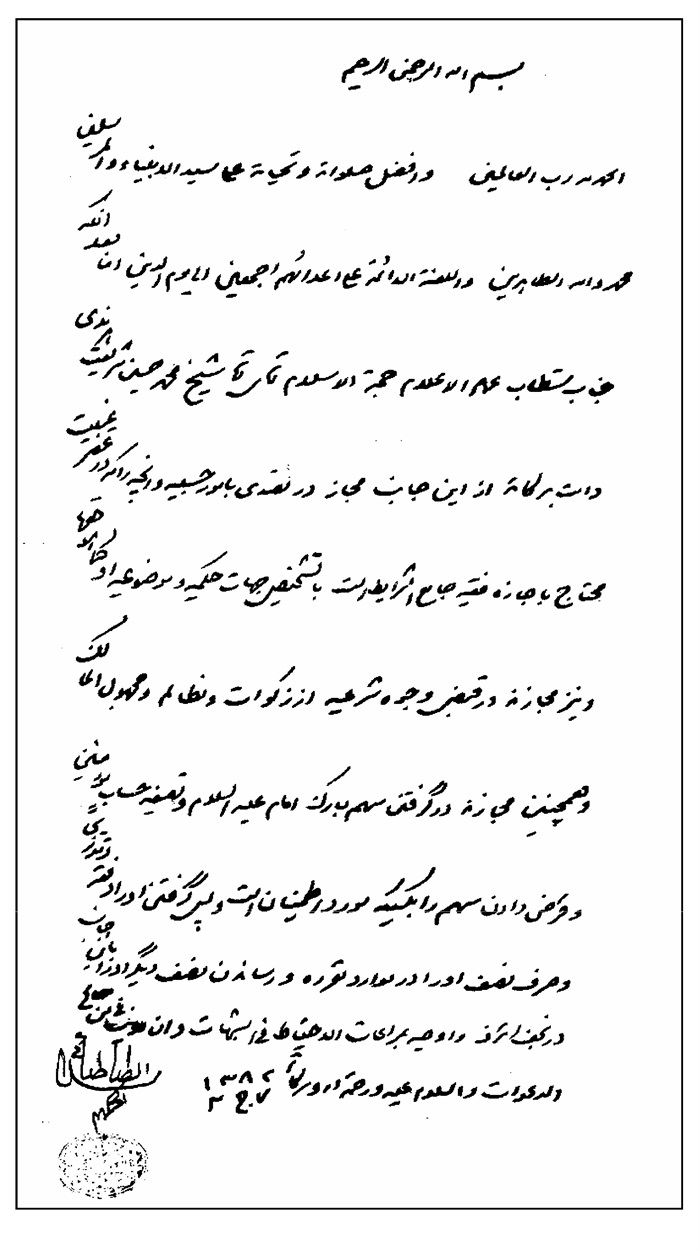 بسم الله الرحمن الرحیم
الحمد لله رب العالمین و افضل صلواته و تحیاته علی سید الانبیاء و المرسلین
محمد و آله الطاهرین و اللعنة الدائمة علی اعدائهم اجمعین الی یوم الدین و بعد آنکه
جناب مستطاب علم الاعلام حجة الاسلام آقای شیخ محمد حسین
دامت برکاته از این جانب مجاز در تصدی بامور حسبیه و آنچه را که در عصر غیبت
محتاج باجازه فقیه جامع الشرایط است با تشخیص جهات حکمیه و موضوعیه او کالا
و نیز مجازند در قبض وجوه شرعیه از زکوات و مظالم و مجهول المالک
و همچنین مجازند در گرفتن سهم مبارک امام علیه السلام و تصفیه حساب
و قرض دادن سهم را بکسیکه مورد اطمینان است و پس گرفتن از او
و صرف نصف او را در موارد مقرره و رساندن نصف دیگر او را باینجانب
در نجف اشرف و اوصیه بمراعات الاحتیاط فی الشبهات و ان صالح
الدعوات و السلام علیه و رحمة الله و برکاته ۷ ج ۲ ۱۳۸۲
الطباطبائی
الحکیم